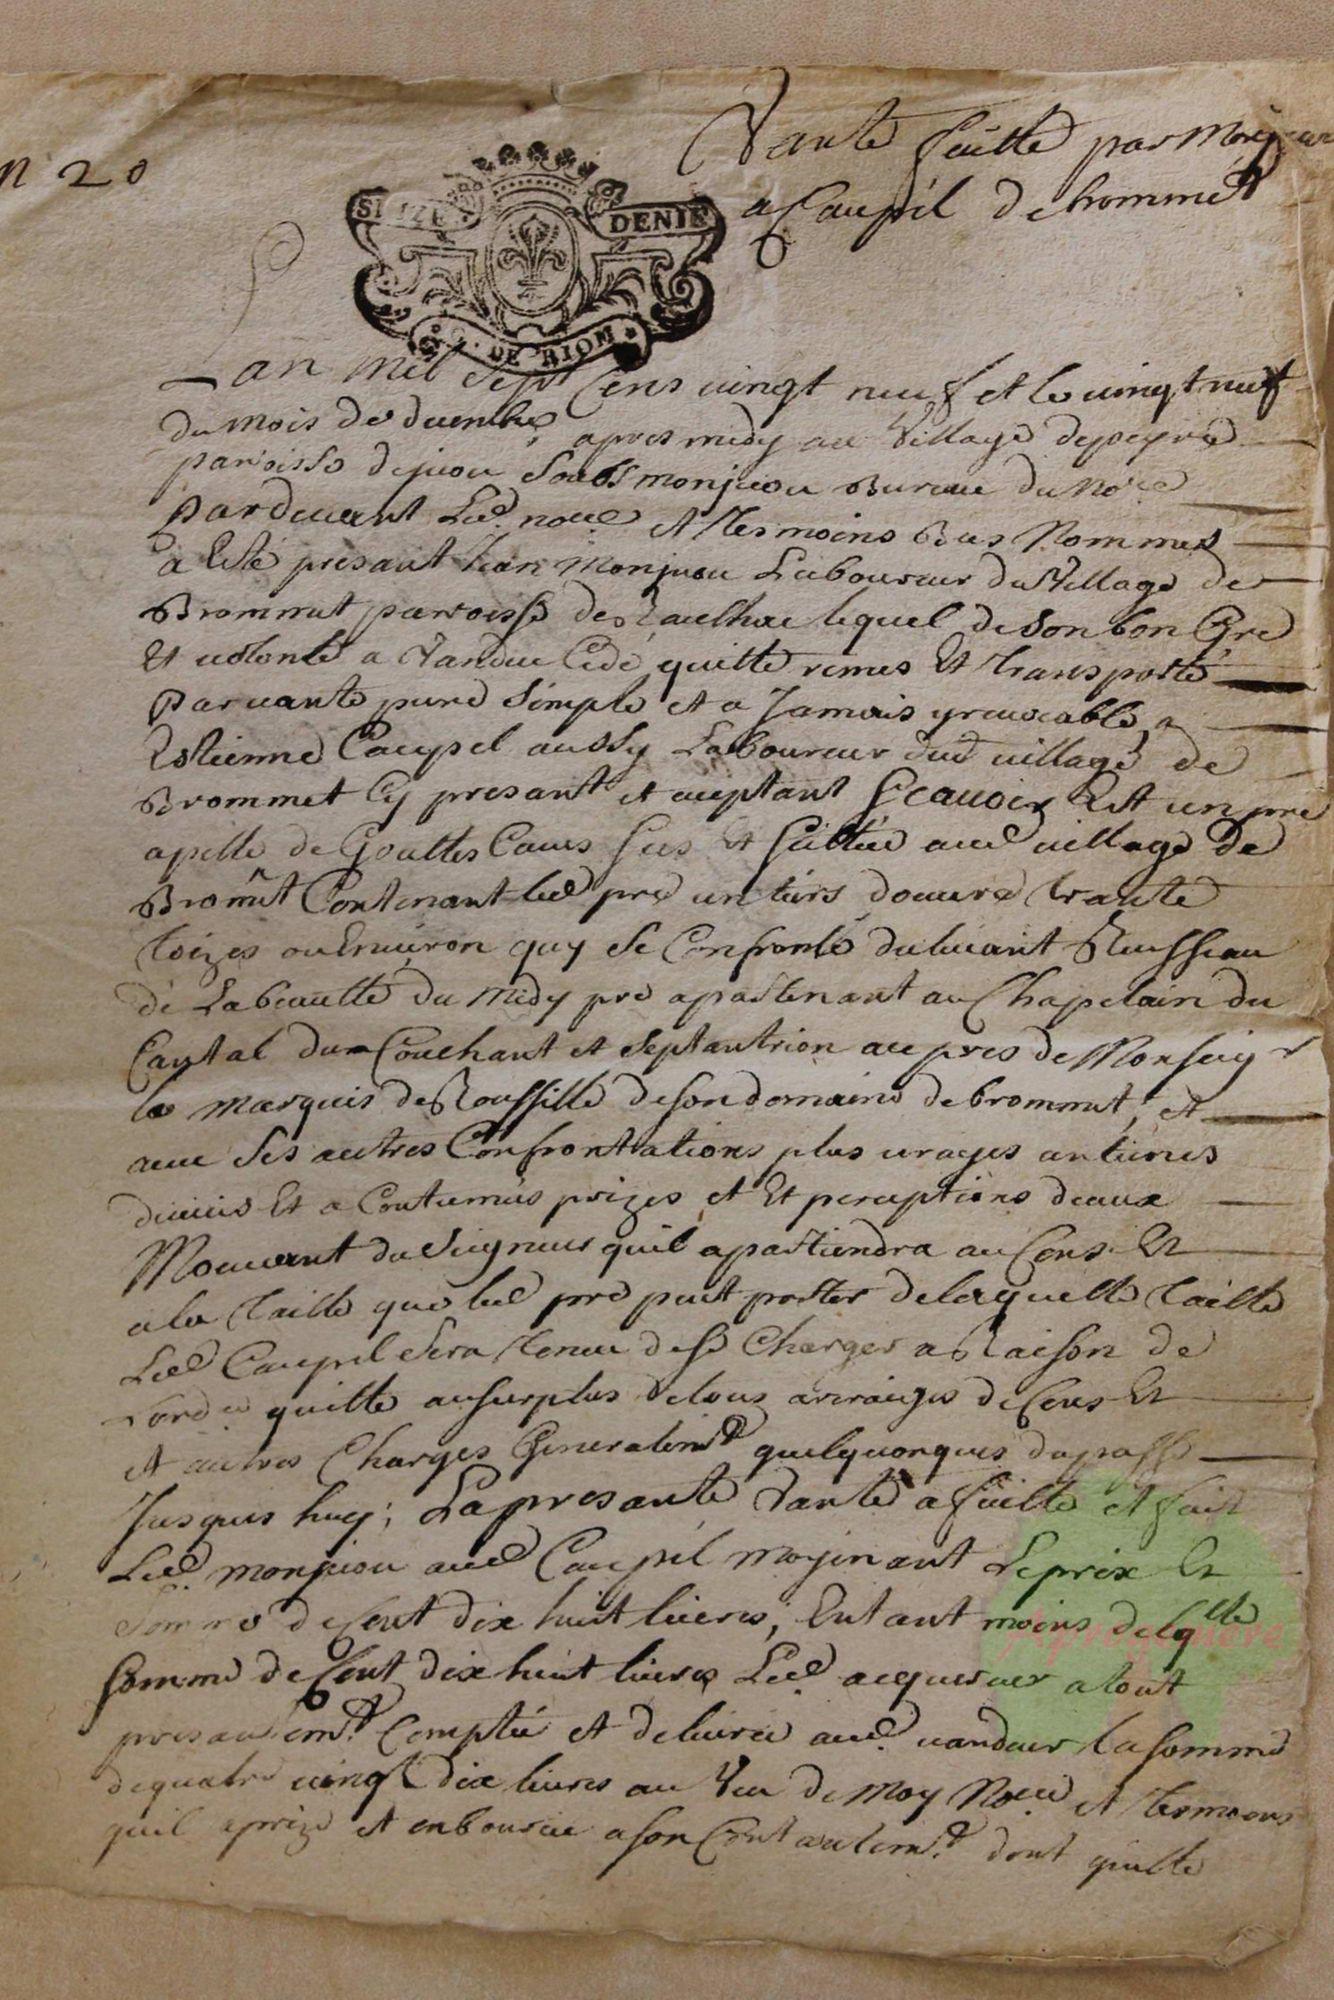 n 20
Vante faitte par Monjou
a Caupel de brommet
SEIZE DENIE
G. DE RIOM
Lan mil sept Cens vingt neuf et le vingt neuf
du mois de decembre, apres midy au Village de peyre
parroisse de juou soubs monjuou Bureau du Nore
Pardevant Led. nore et tesmoins Bas Nommes
a Esté presant Jean Monjuou Laboureur du Village de
Brommet parroisse de Raulhac lequel de son bon Gre
Et volonte a Vandeu Cede quitte remes Et transporté
Par vante pure simple et a Jamais yrevocable a
Estienne Caupel aussy Laboureur dud village de
Brommet Cy presant et aceptant Scavoir Est un pre
apelle de Gouttes Caus Sis Et Sittue aud village de
Bromt Contenant led pre un tiers doeuvre trante
toizes ou Environ quy se Confronte du levant Ruisseau
de Labeautte du midy pre apartenant au Chapelain du
Cantal du Couchant et septantrion au pres de Monseigr
le marquis de Roussille de son domaine de brommet, et
avec ses autres Confrontations plus vrayes antienes
devies Et a Coutumes prizes et Et perceptions deaux
Mouvant du Seigneur quil apartiendra au Cens Et
a la taille que led pre put porter de laquelle taille
Led Caupel sera tenu de se Charger a Raison de
quitte au surplus de tous arreiges de Cens Et
et autres Charges Generalemt quelquonques du passe
Jusques huy; La presante Vante a faitte et fait
Led. monjuou aud Caupel moyinant Le prix Et
Somme de Cent dix huit livres, Entant moins de laqlle
Somme de Cent dix huit livres Led. acquereur a tout
presantemt. Comptée et delivrée aud. vandeur la somme
de quatre vingt dix livres au Veu de Moy Nore et tesmoins
quil a prize et enbourcée a son Contantemt. dont quitte
Aprogemere